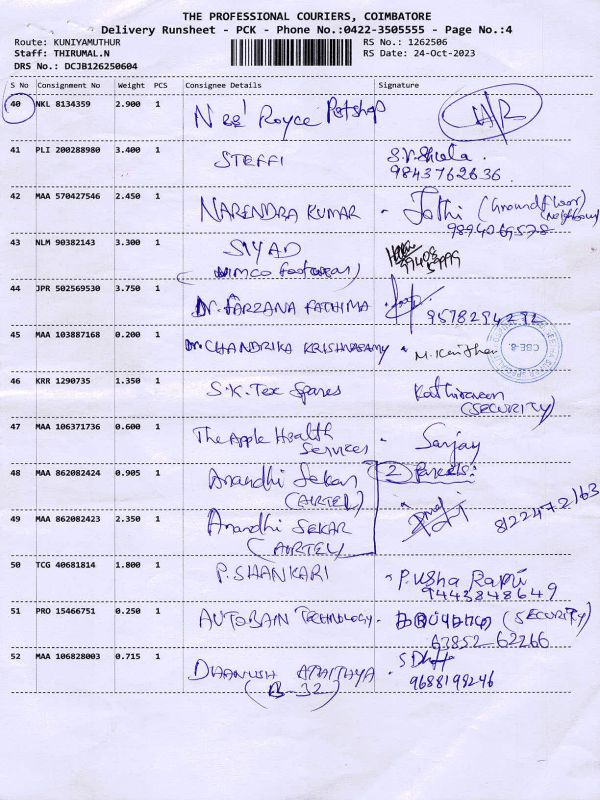 THE PROFESSIONAL COURIERS, COIMBATORE
Delivery Runsheet - PCK - Phone No.:0422-3505555 - Page No.:4
Route: KUNIYAMUTHUR RS No.: 1262506
Staff: THIRUMAL.N RS Date: 24-Oct-2023
DRS No.: DCJB126250604
S No Consignment No Weight PCS Consignee Details Signature
40 NKL 8134359 2.900 1 Royce Petshop
41 PLI 200288980 3.400 1 STEFFI S.V.Sheela.
9843762636.
42 MAA 570427546 2.450 1 NARENDRA KUMAR - Jothi (Groundfloor)
(Neighbour)
9894069578
43 NLM 90382143 3.300 1 SIYAD
(Wimco Footwear)
44 JPR 502569530 3.750 1 Dr. FARZANA FATHIMA
9578294292
45 MAA 103887168 0.200 1 Dr. CHANDRIKA KRISHNASAMY
46 KRR 1290735 1.350 1 S.K. Tex Spares
(SECURITY)
47 MAA 106371736 0.600 1 The Apple Health
Services - Sanjay
48 MAA 862082424 0.905 1 Anandhi Sekar 2 Parcels:
(AIRTEL)
49 MAA 862082423 2.350 1 Anandhi SEKAR 8122472163
(AIRTEL)
50 TCG 40681814 1.800 1 P.SHANKARI - P.Usha Rapu
9443848649
51 PRO 15466751 0.250 1 AUTOBAIN TECHNOLOGY- (SECURITY)
63852-62266
52 MAA 106828003 0.715 1 DHANUSH ATHITHYA
(B-32) 9688198246